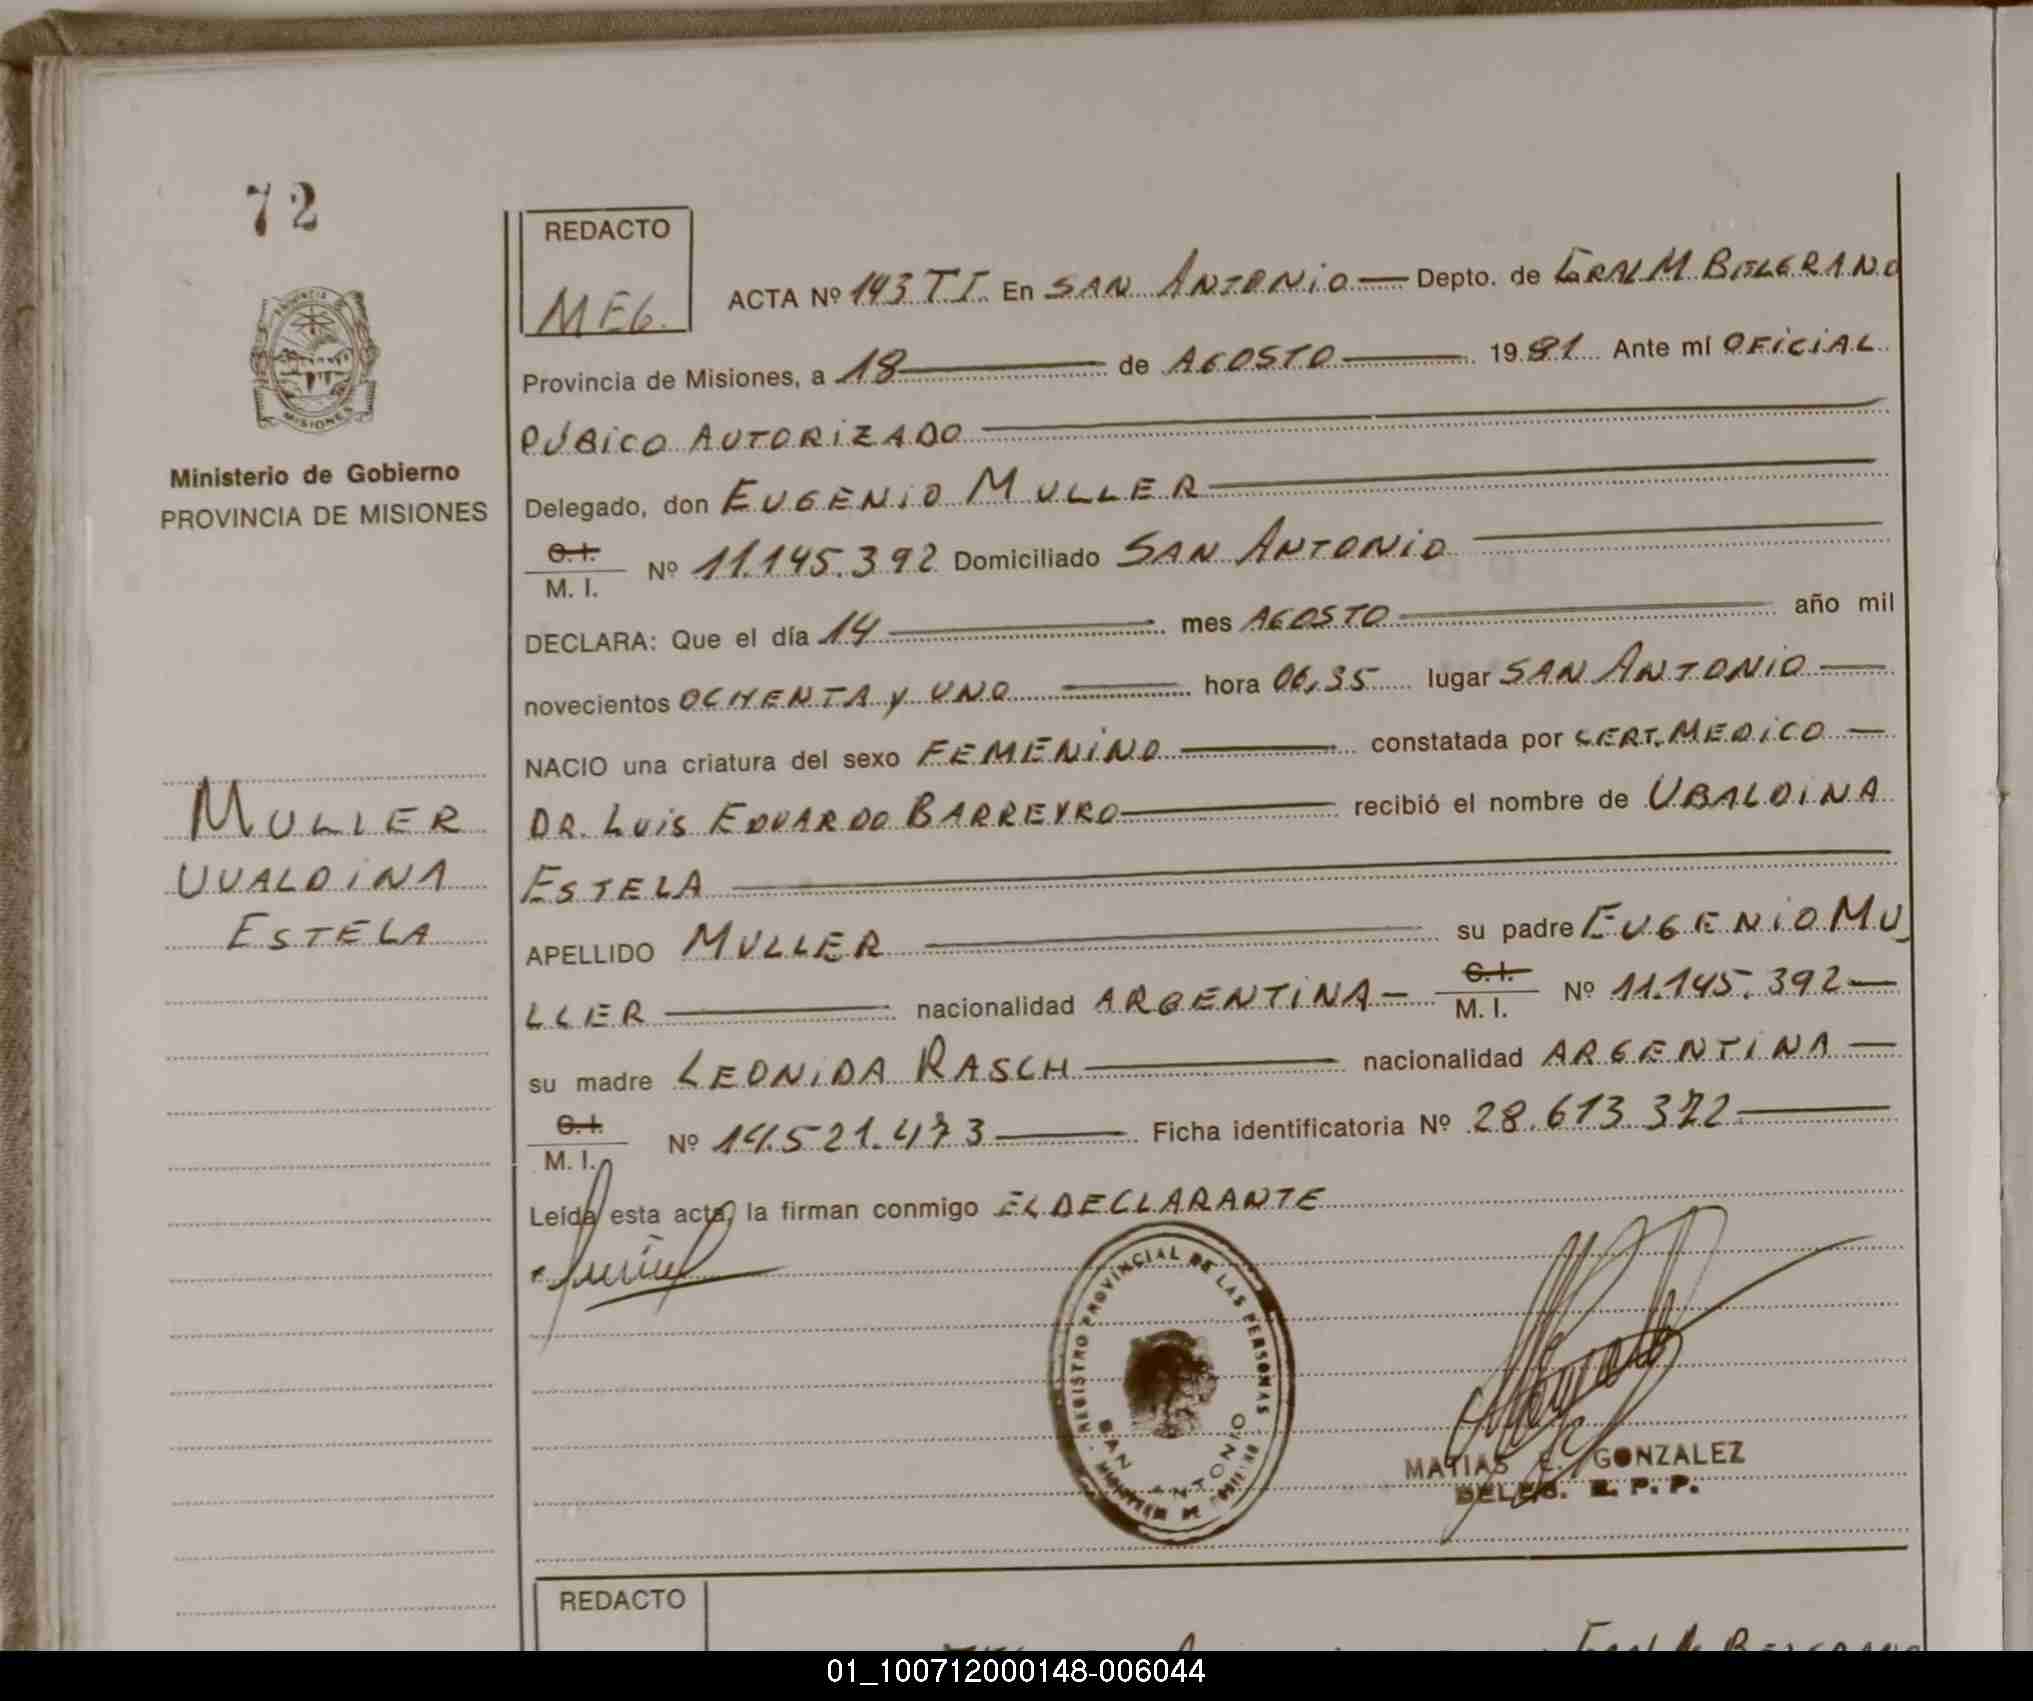 72
REDACTO
MEG.
ACTA Nº 143 TI. En SAN ANTONIO — Depto. de GRAL M. BELGRANO
Provincia de Misiones, a 18 — de AGOSTO — 1981 Ante mí OFICIAL
PÚBICO AUTORIZADO
Delegado, don EUGENIO MULLER
C.I. M. I. Nº 11.145.392 Domiciliado SAN ANTONIO
DECLARA: Que el día 14 — mes AGOSTO — año mil
novecientos OCHENTA y UNO — hora 06,35 lugar SAN ANTONIO —
NACIO una criatura del sexo FEMENINO — constatada por CERT. MEDICO —
DR. LUIS EDUARDO BARREYRO — recibió el nombre de UBALDINA
ESTELA
APELLIDO MULLER — su padre EUGENIO MU
LLER — nacionalidad ARGENTINA — C.I. M. I. Nº 11.145.392 —
su madre LEONIDA RASCH — nacionalidad ARGENTINA —
C.I. M. I. Nº 14.521.473 — Ficha identificatoria Nº 28.613.372 —
Leída esta acta, la firman conmigo EL DECLARANTE
PROVINCIA DE
MISIONES
Ministerio de Gobierno
PROVINCIA DE MISIONES
MULLER
UVALDINA
ESTELA
REGISTRO PROVINCIAL DE LAS PERSONAS
SAN ANTONIO
MATIAS E. GONZALEZ
DELEG. R. P. P.
REDACTO
01_100712000148-006044